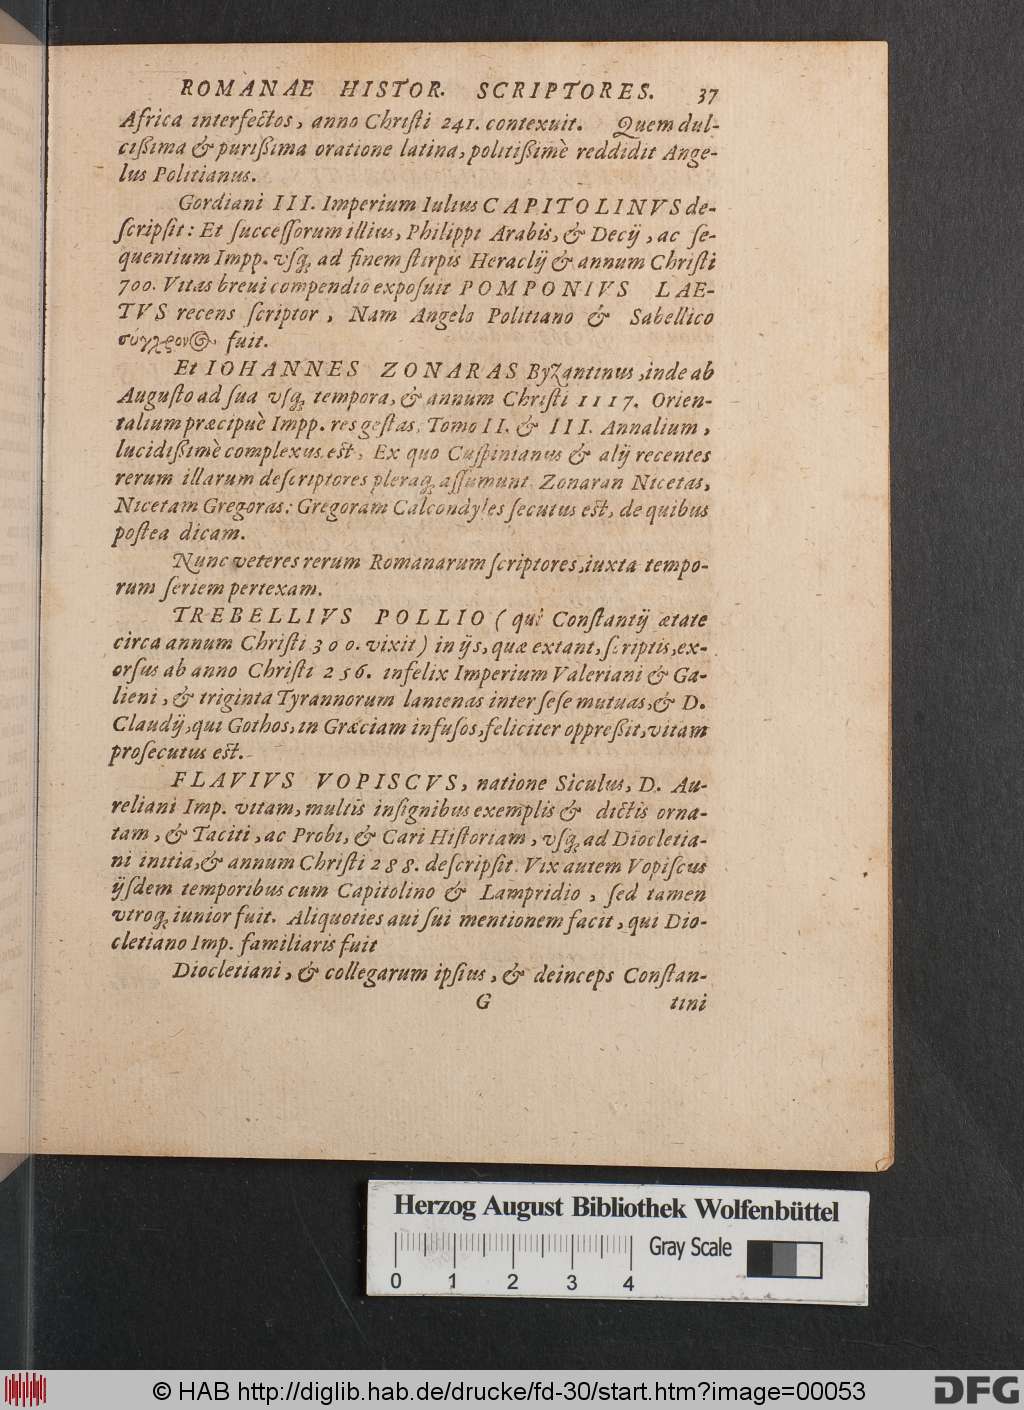 ROMANAE HISTOR. SCRIPTORES. 37
Africa interfectos, anno Christi 241. contexuit. Quem dul-
cißima & purißima oratione latina, politißimè reddidit Ange-
lus Politianus.
Gordiani III. Imperium Iulius CAPITOLINVS de-
ſcripſit: Et ſucceſſorum illius, Philippi Arabis, & Decij, ac ſe-
quentium Impp. vſq; ad finem ſtirpis Heraclij & annum Chriſti
700. Vitas breui compendio expoſuit POMPONIVS LAE-
TVS recens ſcriptor, Nam Angelo Politiano & Sabellico
σύγχρονος fuit.
Et IOHANNES ZONARAS Byzantinus, inde ab
Auguſto ad ſua vſq; tempora, & annum Chriſti 1117. Orien-
talium præcipuè Impp. res geſtas, Tomo II. & III. Annalium,
lucidißimè complexus eſt, Ex quo Cuſpinianus & alij recentes
rerum illarum deſcriptores pleraq; aſſumunt. Zonaran Nicetas,
Nicetam Gregoras: Gregoram Calcondyles ſecutus eſt, de quibus
poſtea dicam.
Nunc veteres rerum Romanarum ſcriptores, iuxta tempo-
rum ſeriem pertexam.
TREBELLIVS POLLIO (qui Conſtantij ætate
circa annum Chriſti 300. vixit) in ijs, quæ extant, ſcriptis, ex-
orſus ab anno Chriſti 256. infelix Imperium Valeriani & Ga-
lieni, & triginta Tyrannorum lanienas inter ſeſe mutuas, & D.
Claudij, qui Gothos, in Græciam infuſos, feliciter oppreßit, vitam
proſecutus eſt.
FLAVIVS VOPISCVS, natione Siculus, D. Au-
reliani Imp. vitam, multis inſignibus exemplis & dictis orna-
tam, & Taciti, ac Probi, & Cari Hiſtoriam, vſq; ad Diocletia-
ni initia, & annum Chriſti 288. deſcripſit. Vix autem Vopiſcus
ijſdem temporibus cum Capitolino & Lampridio, ſed tamen
vtroq; iunior fuit. Aliquoties aui ſui mentionem facit, qui Dio-
cletiano Imp. familiaris fuit
Diocletiani, & collegarum ipſius, & deinceps Conſtan-
G tini
Herzog August Bibliothek Wolfenbüttel
Gray Scale
0 1 2 3 4
© HAB http://diglib.hab.de/drucke/fd-30/start.htm?image=00053
DFG